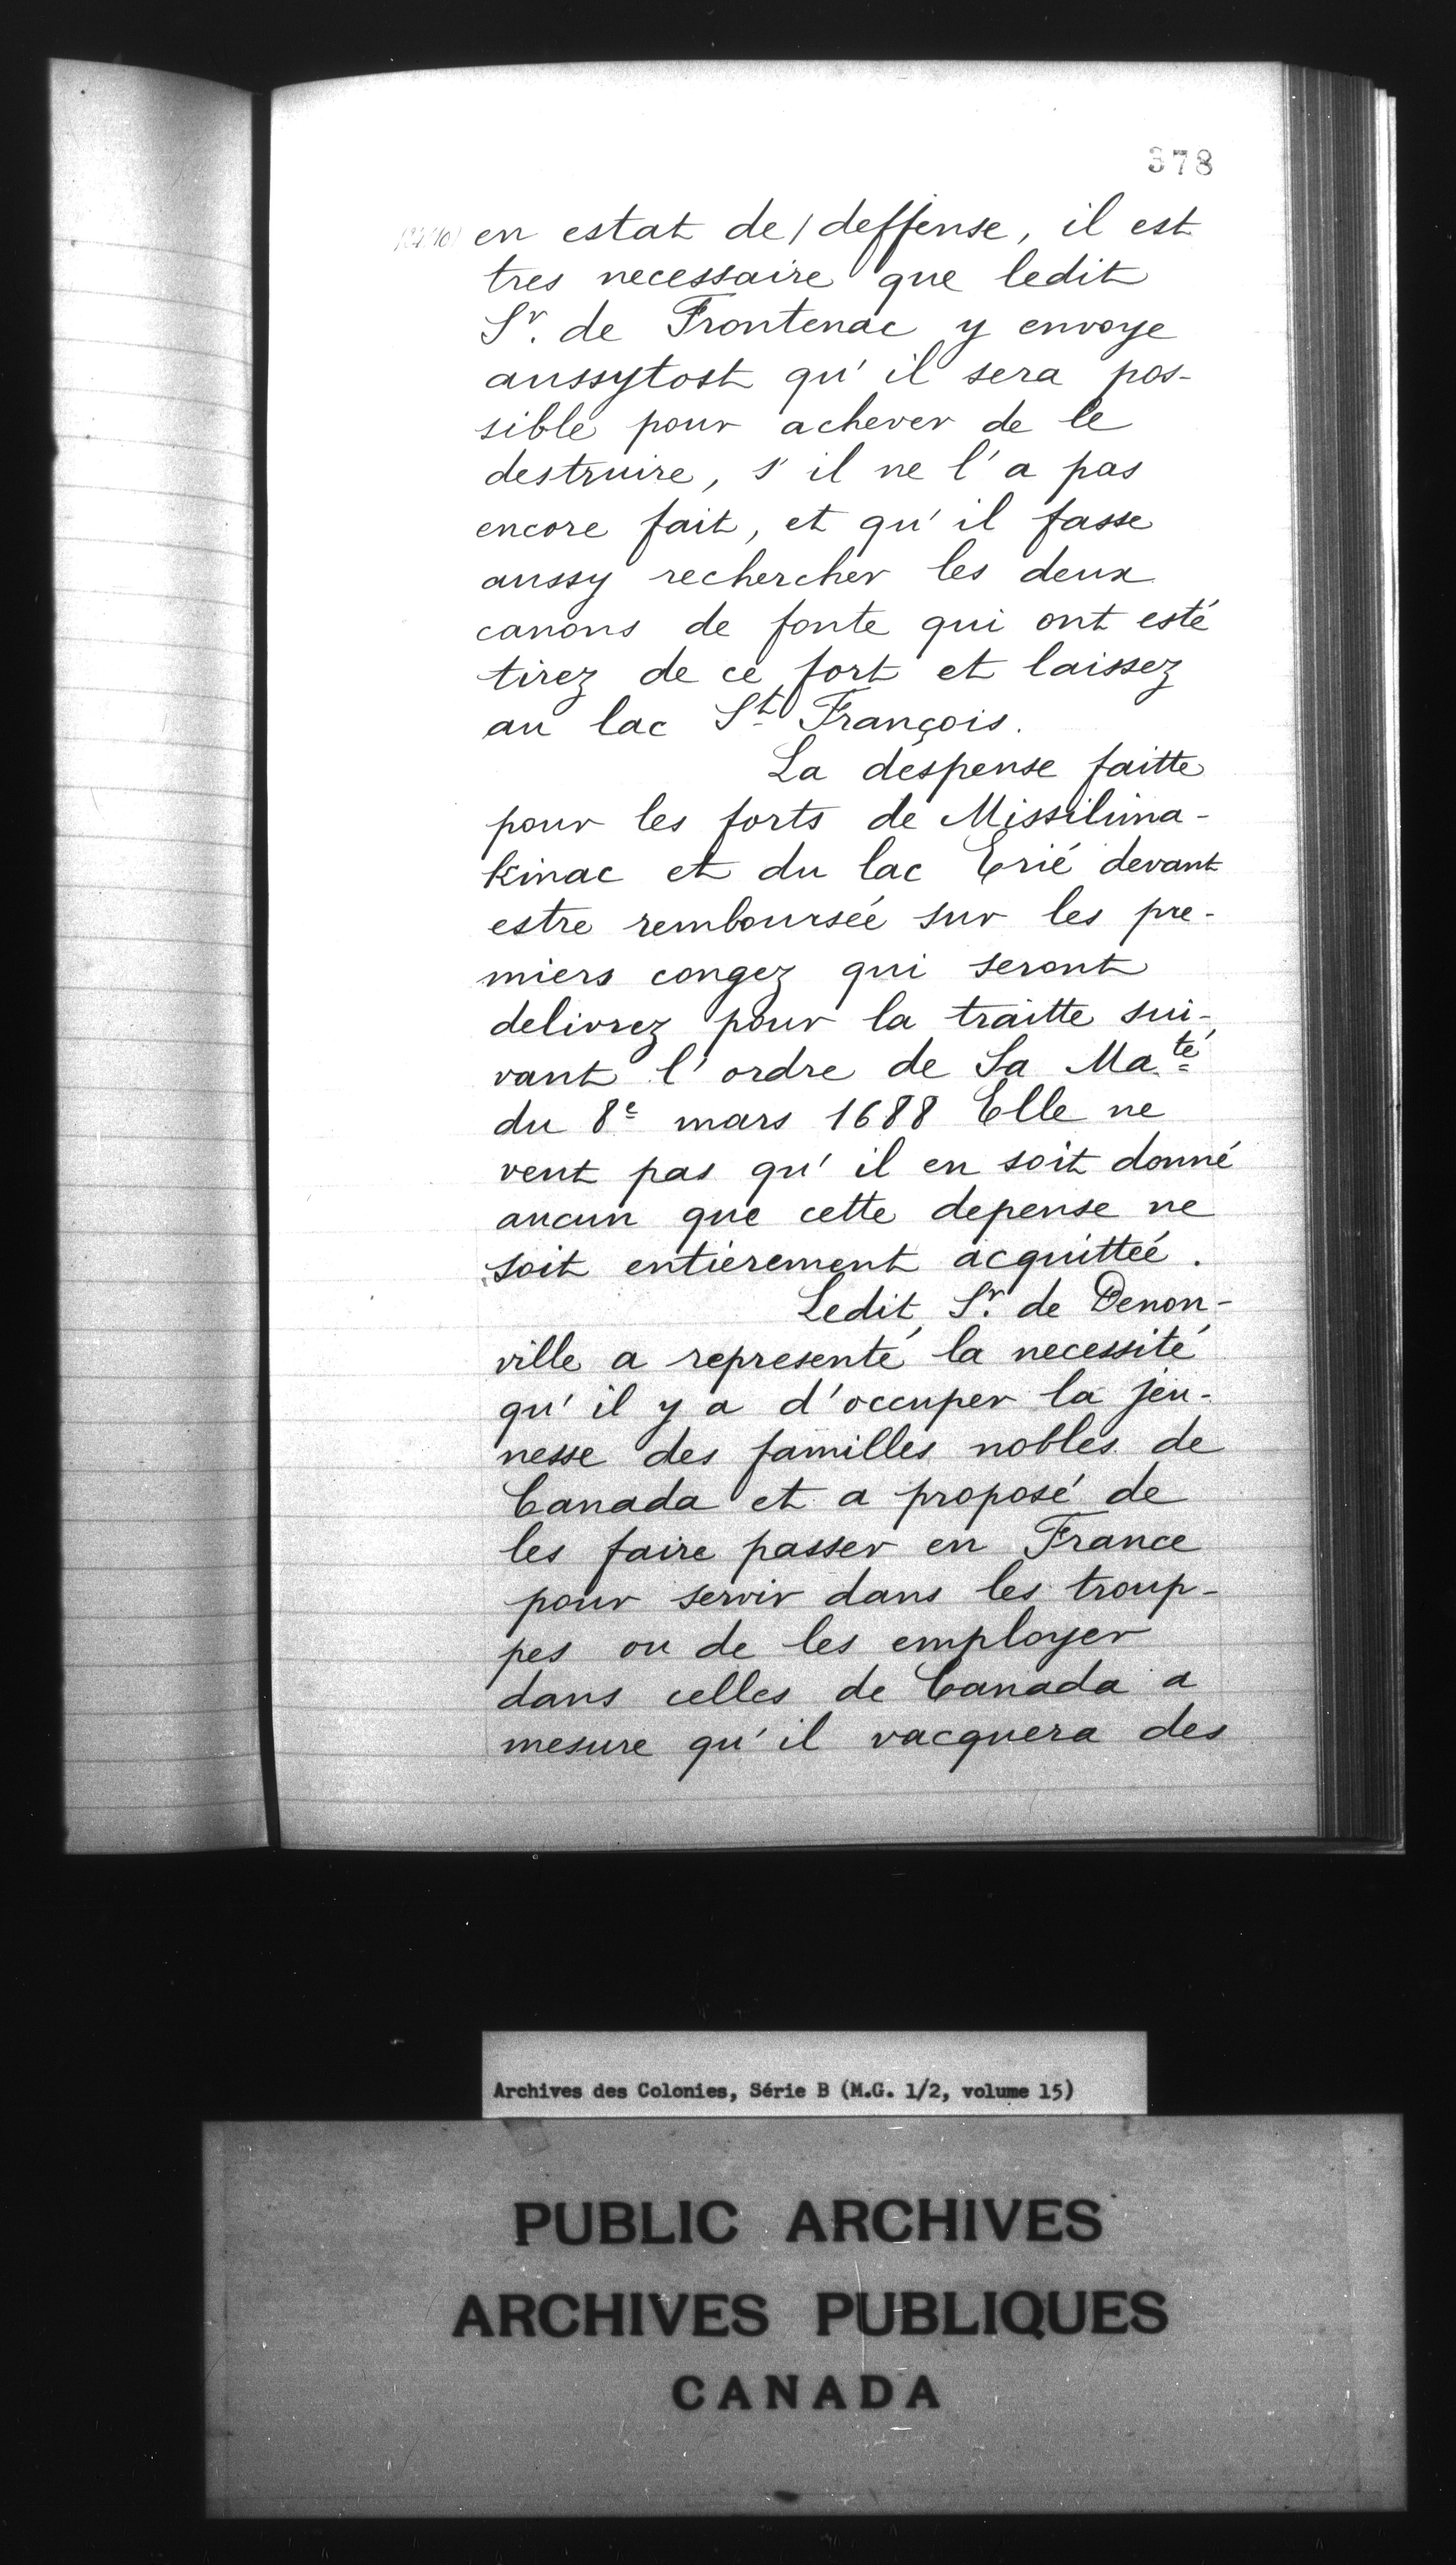 378
en estat de / deffense, il est
tres necessaire que ledit
Sr. de Frontenac y envoye
aussytost qu'il sera pos-
sible pour achever de le
destruire, s'il ne l'a pas
encore fait, et qu'il fasse
aussy rechercher les deux
canons de fonte qui ont esté
tirez de ce fort et laissez
au lac St François.
La despense faitte
pour les forts de Missilima-
kinac et du lac Erié devant
estre remboursée sur les pre-
miers congez qui seront
delivrez pour la traitte sui-
vant l'ordre de Sa Maté
du 8e mars 1688 Elle ne
veut pas qu'il en soit donné
aucun que cette depense ne
soit entièrement acquittée.
Ledit Sr. de Denon-
ville a representé la necessité
qu'il y a d'occuper la jeu-
nesse des familles nobles de
Canada et a proposé de
les faire passer en France
pour servir dans les troup-
pes ou de les employer
dans celles de Canada a
mesure qu'il vacquera des
Archives des Colonies, Série B (M.G. 1/2, volume 15)
PUBLIC ARCHIVES
ARCHIVES PUBLIQUES
CANADA